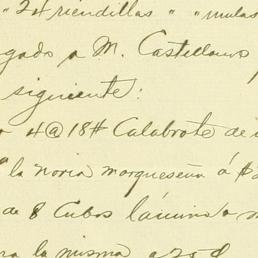 " 24 riendillas " " mulas
gado a M. Castellano
siguiente:
4@18# Calabrote de
" la noria marquesena á $2
de 8 Cubos lámina
la misma a 25 ¢